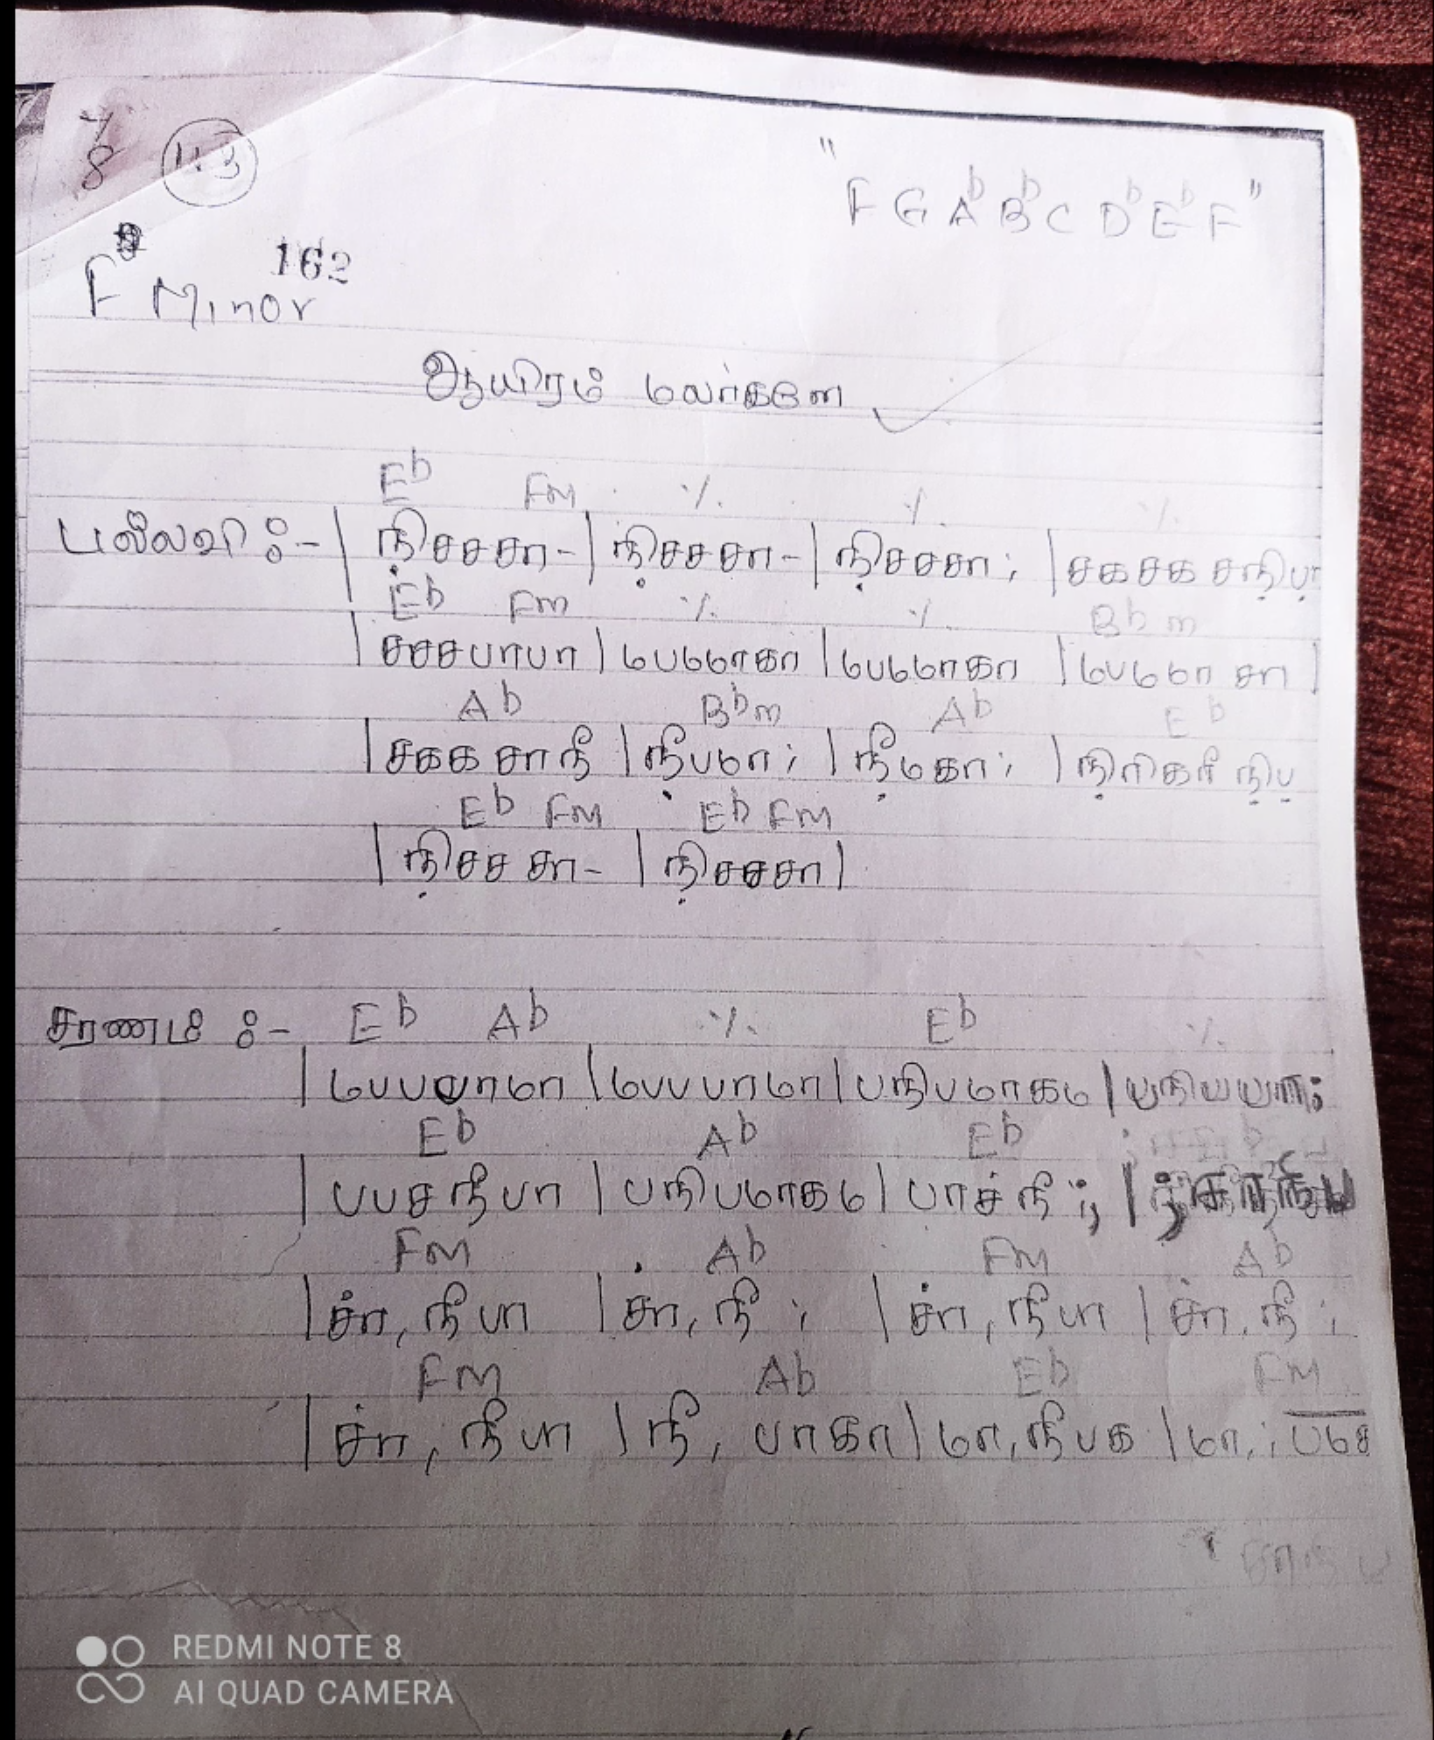 7/8 113
"F G A♭ B♭ C D♭ E♭ F"
162
F Minor
ஆயிரம் மலர்களே
E♭ Fm ٪ ٪ ٪
பல்லவி :- | நி̣சசசா- | நி̣சசசா- | நி̣சசசா ; | சகசக சநி̣ப̣
E♭ Fm ٪ ٪ B♭m
| சசசபாபா | பபமாகா | பபமாகா | பபமா சா |
A♭ B♭m A♭ E♭
| சகக சாநீ | நீ̣பமா ; | நீ̣மகா ; | நி̣ரிகரி நி̣ப̣
E♭ Fm E♭ Fm
| நி̣சச சா- | நி̣சசசா |
சரணம் :- E♭ A♭ ٪ E♭ ٪
| பபபாமா | பபபாமா | பநிபமாகம | பநிபபா ;
E♭ A♭ E♭
| பபசநீபா | பநிபமாகம | பாச்நீ ; ; |
Fm A♭ Fm A♭
| ச்ா, நீ பா | ச்ா, நீ ; | ச்ா, நீபா | ச்ா, நீ ;
Fm A♭ E♭ Fm
| ச்ா, நீ பா | நீ, பாகா | மா, நீபக | மா, ;
REDMI NOTE 8
AI QUAD CAMERA